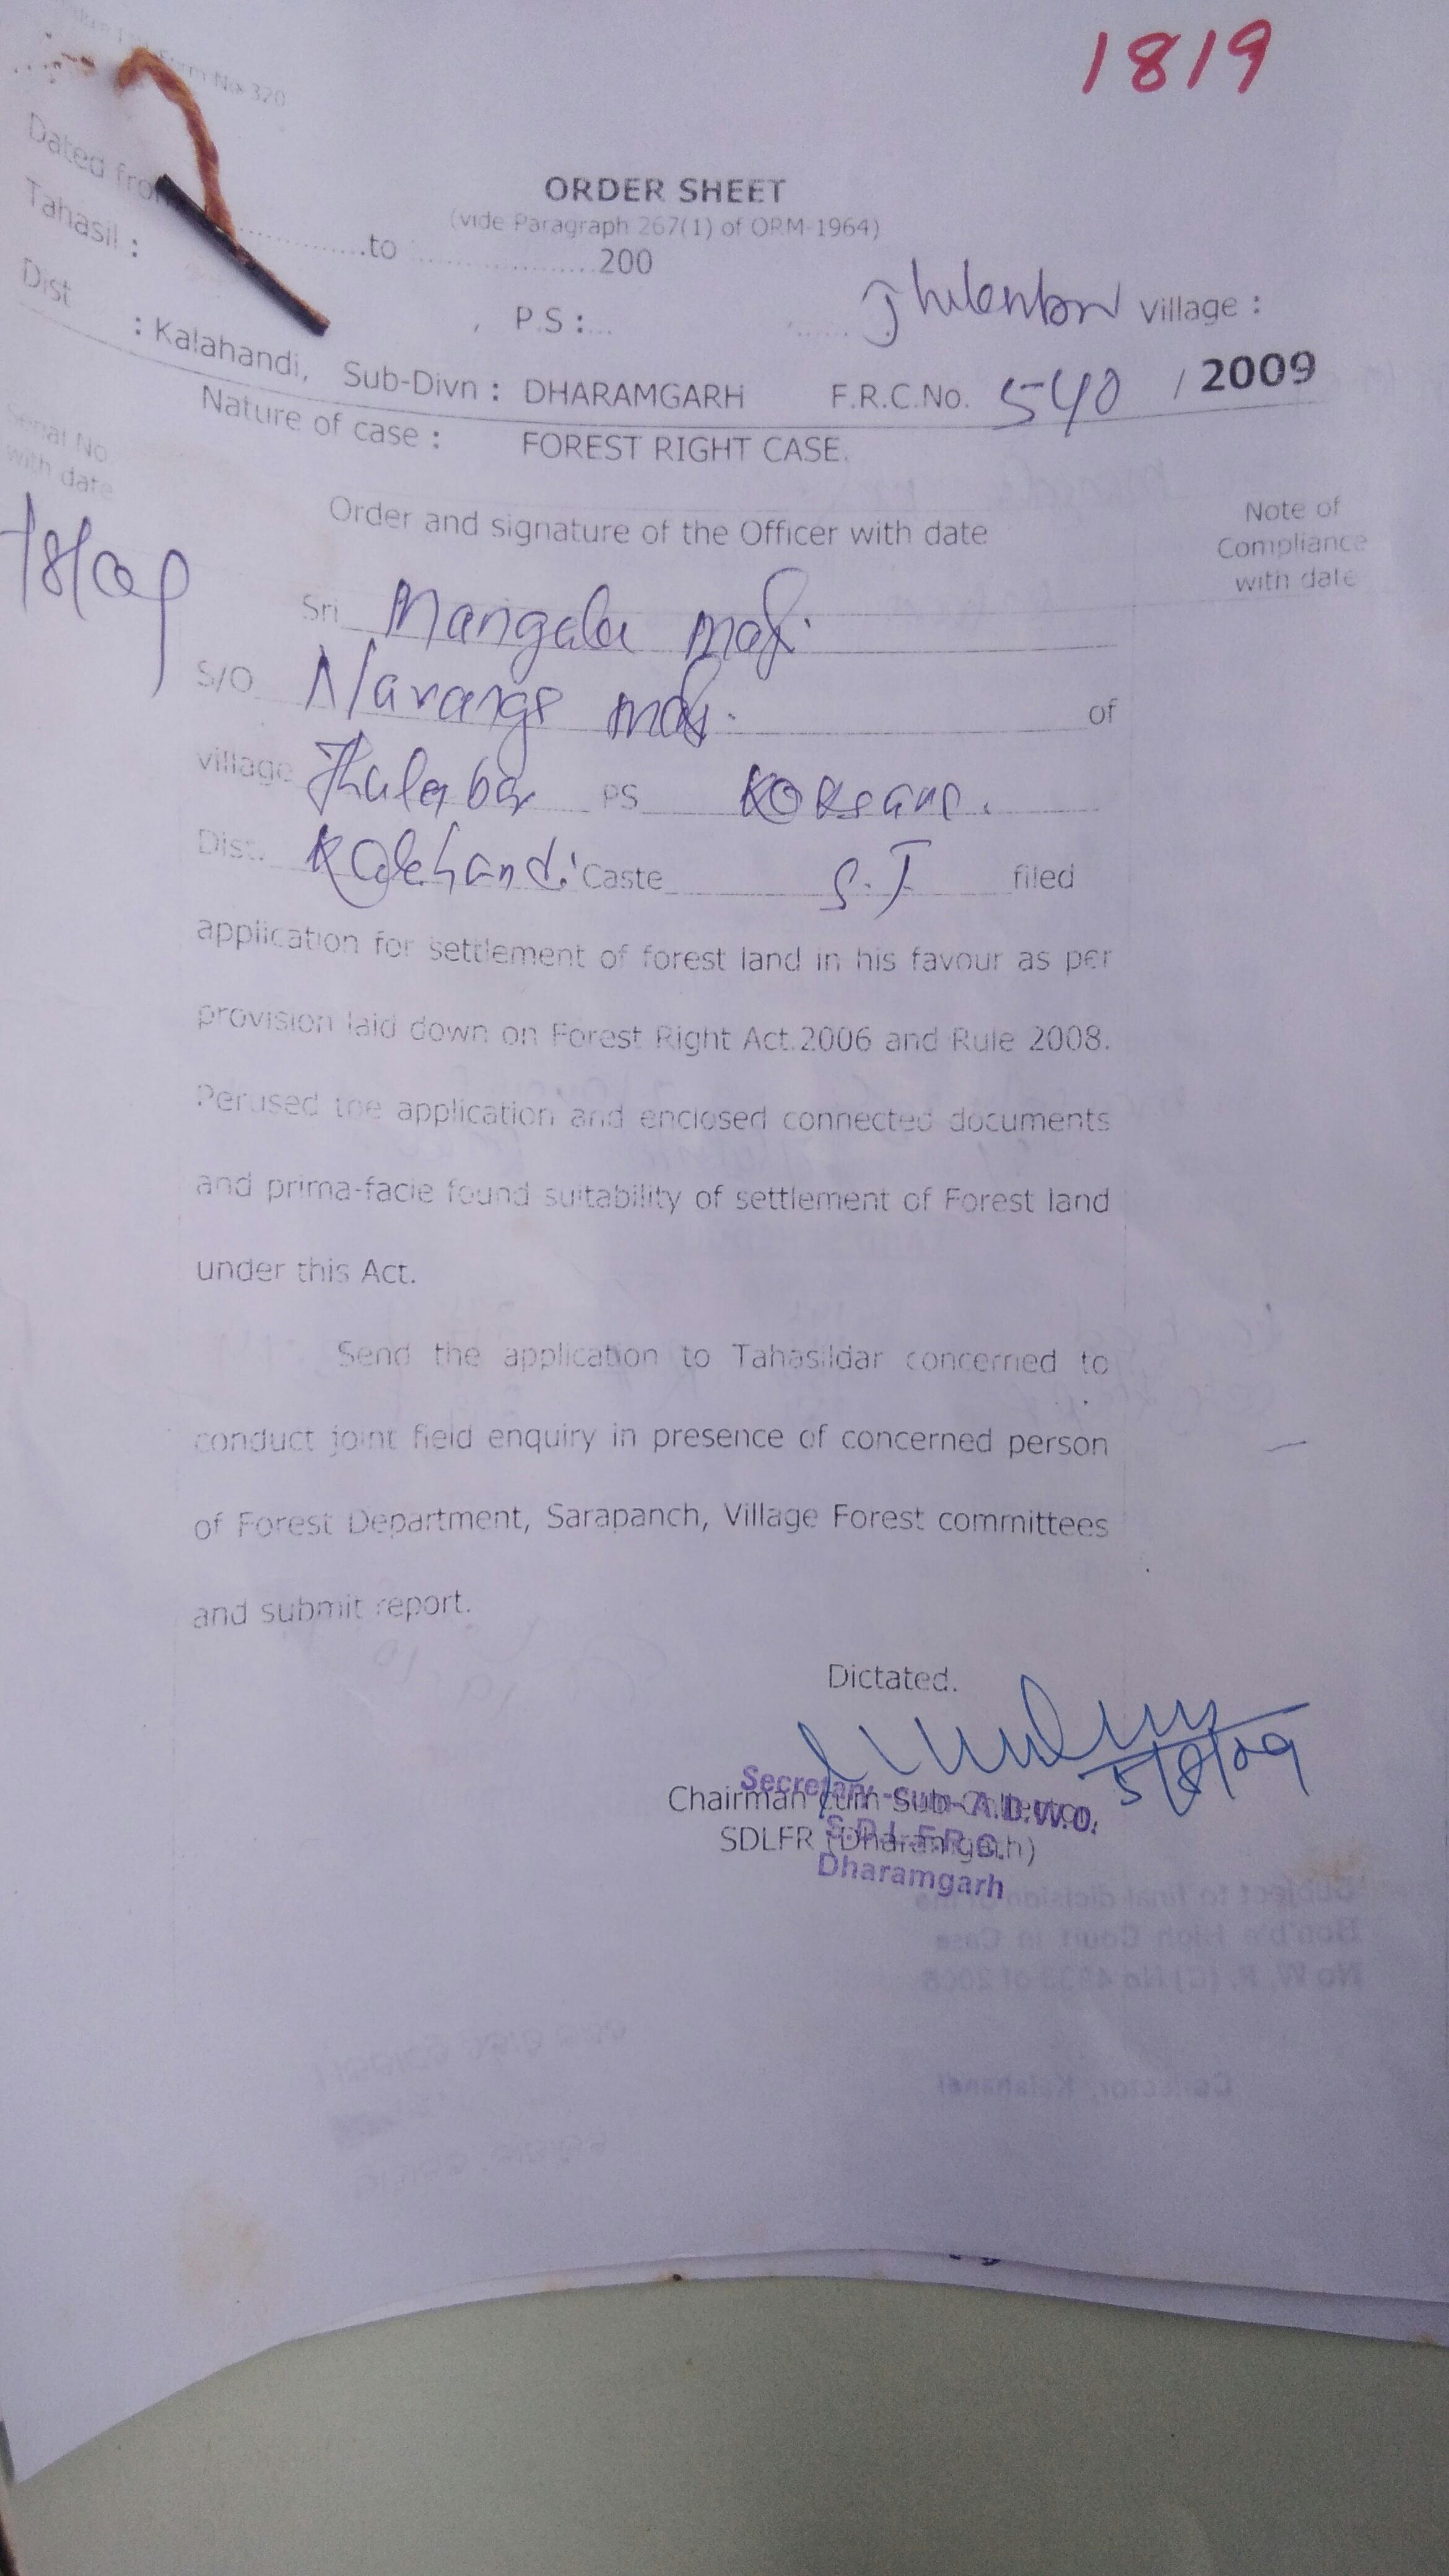 1819
Form No 320
ORDER SHEET
(vide Paragraph 267(1) of ORM-1964)
Dated from ....................to .....................200
Tahasil : , P.S :... Village :
Dist : Kalahandi, Sub-Divn : DHARAMGARH F.R.C.No. 540 / 2009
Nature of case : FOREST RIGHT CASE.
Serial No
with date
Order and signature of the Officer with date
Note of
Compliance
with date
Sri Mangalu Maji
S/O of
village PS
Dist. Kalahandi Caste S.T filed
application for settlement of forest land in his favour as per
provision laid down on Forest Right Act.2006 and Rule 2008.
Perused the application and enclosed connected documents
and prima-facie found suitability of settlement of Forest land
under this Act.
Send the application to Tahasildar concerned to
conduct joint field enquiry in presence of concerned person
of Forest Department, Sarapanch, Village Forest committees
and submit report.
Dictated.
5/8/09
Chairman cum Sub-Collector,
SDLFR (Dharamgarh)
Secretary -cum- A.D.W.O.
S.D.L.F.R.C.
Dharamgarh